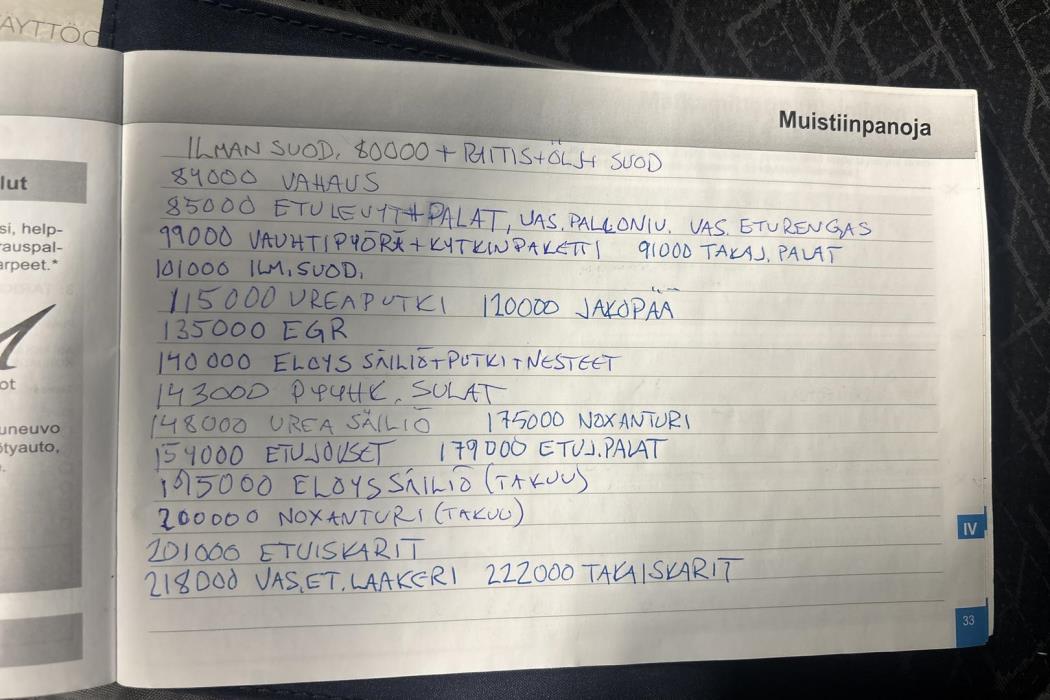 ÄYTTÖO
lut
si, help-
rauspal-
arpeet.*
ot
uneuvo
ötyauto,
Muistiinpanoja
ILMAN SUOD. 80000 + RAITIS+ÖLJ+ SUOD
84000 VAHAUS
85000 ETULEVYT+PALAT, VAS. PALLONIV. VAS. ETURENGAS
99000 VAUHTIPYÖRÄ+KYTKINPAKETTI 91000 TAKAJ. PALAT
101000 ILM. SUOD.
115000 UREAPUTKI 120000 JAKOPÄÄ
135000 EGR
140000 ELOYS SÄILIÖ+PUTKI+NESTEET
143000 PYYHK. SULAT
148000 UREA SÄILIÖ 175000 NOXANTURI
154000 ETUJOUSET 179000 ETUJ.PALAT
195000 ELOYS SÄILIÖ (TAKUU)
200000 NOXANTURI (TAKUU)
201000 ETUISKARIT
218000 VAS.ET.LAAKERI 222000 TAKAISKARIT
IV
33